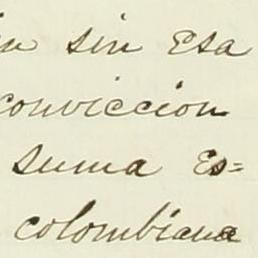 sin esa
conviccion
suma es=
colombiana